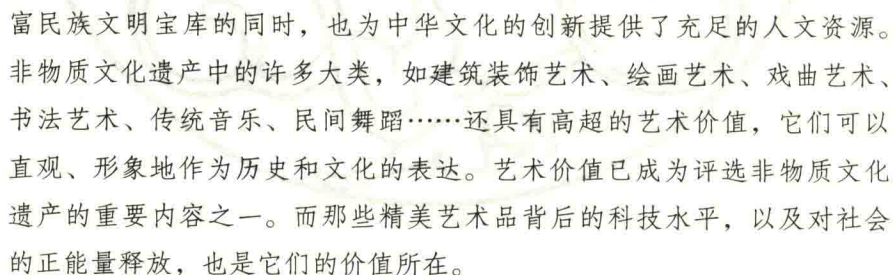 富民族文明宝库的同时，也为中华文化的创新提供了充足的人文资源。
非物质文化遗产中的许多大类，如建筑装饰艺术、绘画艺术、戏曲艺术、
书法艺术、传统音乐、民间舞蹈……还具有高超的艺术价值，它们可以
直观、形象地作为历史和文化的表达。艺术价值已成为评选非物质文化
遗产的重要内容之一。而那些精美艺术品背后的科技水平，以及对社会
的正能量释放，也是它们的价值所在。